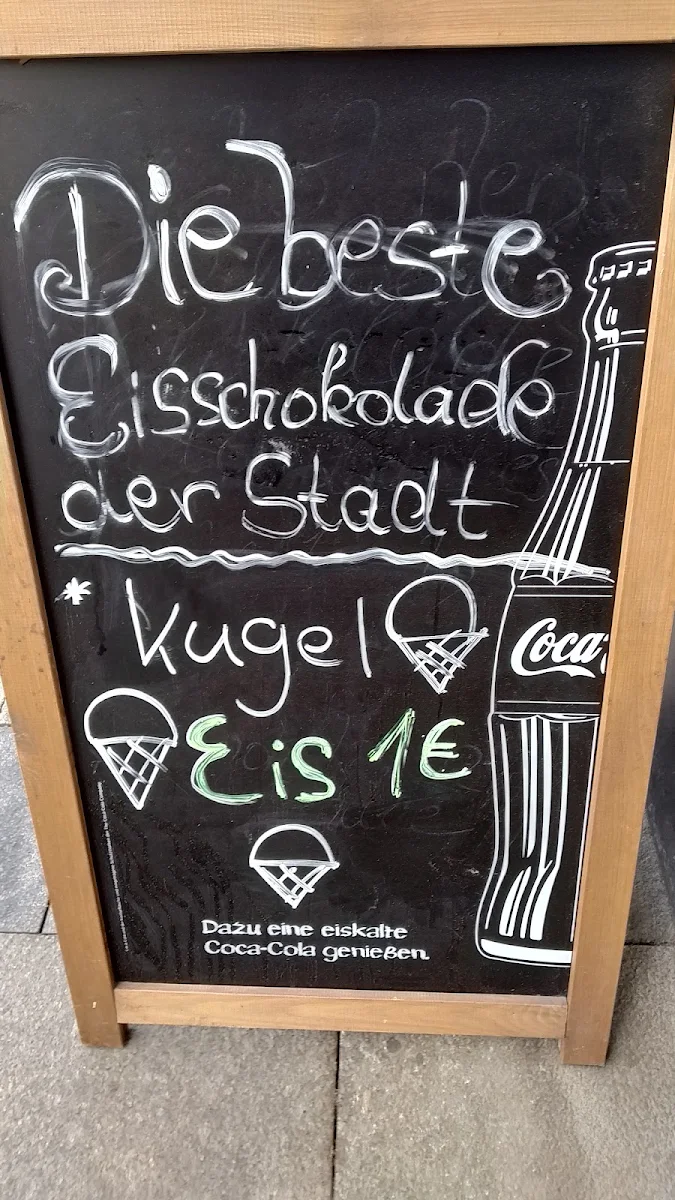 Die beste
Eisschokolade
der Stadt
* Kugel
Eis 1€
Coca
Dazu eine eiskalte
Coca-Cola genießen.